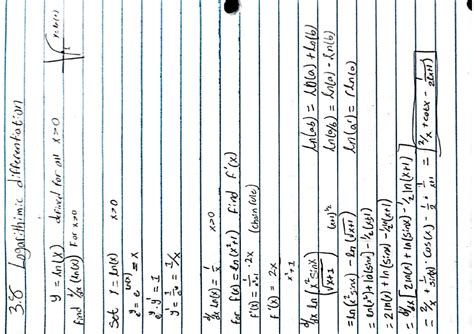 3.8 Logarithmic differentiation
y = ln(x) defined for all x>0
Find d/dx (ln(x)) For x>0
Set y = ln(x) x>0
e^y = e^ln(x) = x
e^y · y' = 1
y' = 1/e^y = 1/x
d/dx ln(x) = 1/x x>0
for f(x) = ln(x²+1) Find f'(x)
f'(x) = 1/x²+1 · 2x (chain rule)
f'(x) = 2x/x²+1
d/dx ln [x² sinx/√x+1] (x+1)^1/2
ln(ab) = ln(a) + ln(b)
ln(a/b) = ln(a) - ln(b)
ln(a^r) = r ln(a)
= ln(x² sinx) - ln(√x+1)
= ln(x²) + ln(sinx) - 1/2 ln(x+1)
= 2ln(x) + ln(sinx) - 1/2 ln(x+1)
= d/dx [2ln(x) + ln(sinx) - 1/2 ln(x+1)]
= 2/x + 1/sin(x) · cos(x) - 1/2 · 1/x+1 = 2/x + cotx - 1/2(x+1)